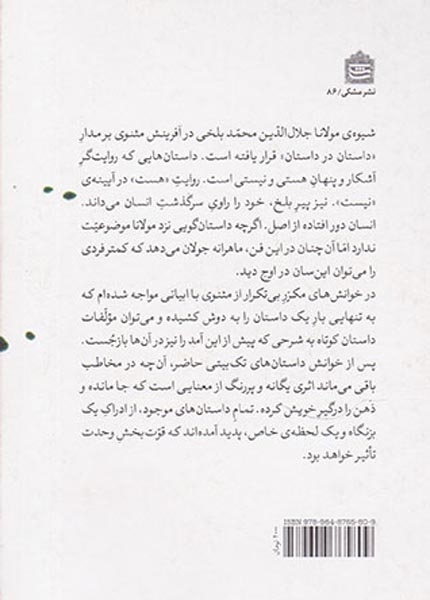 نشر مشکی / ۸۶
شیوه‌ی مولانا جلال‌الدّین محمّد بلخی در آفرینش مثنوی بر مدارِ
«داستان در داستان» قرار یافته است. داستان‌هایی که روایت‌گرِ
آشکار و پنهانِ هستی و نیستی است. روایتِ «هست» در آیینه‌ی
«نیست». نیز پیرِ بلخ، خود را راویِ سرگذشتِ انسان می‌داند.
انسانِ دور افتاده از اصل. اگرچه داستان‌گویی نزد مولانا موضوعیّت
ندارد امّا آن‌چنان در این فن، ماهرانه جولان می‌دهد که کمتر فردی
را می‌توان این‌سان در اوج دید.
در خوانش‌های مکرّرِ بی‌تکرار از مثنوی با ابیاتی مواجه شده‌ام که
به تنهایی بارِ یک داستان را به دوش کشیده و می‌توان مؤلّفات
داستان کوتاه به شرحی که پیش از این آمد را نیز در آن‌ها بازجُست.
پس از خوانشِ داستان‌های تک‌بیتیِ حاضر، آن‌چه در مخاطب
باقی می‌ماند اثری یگانه و پررنگ از معنایی است که جا مانده و
ذهن را درگیرِ خویش کرده. تمام داستان‌های موجود، از ادراکِ یک
بزنگاه و یک لحظه‌ی خاص، پدید آمده‌اند که قوّت‌بخشِ وحدت
تأثیر خواهد بود.
ISBN 978-964-8765-80-9